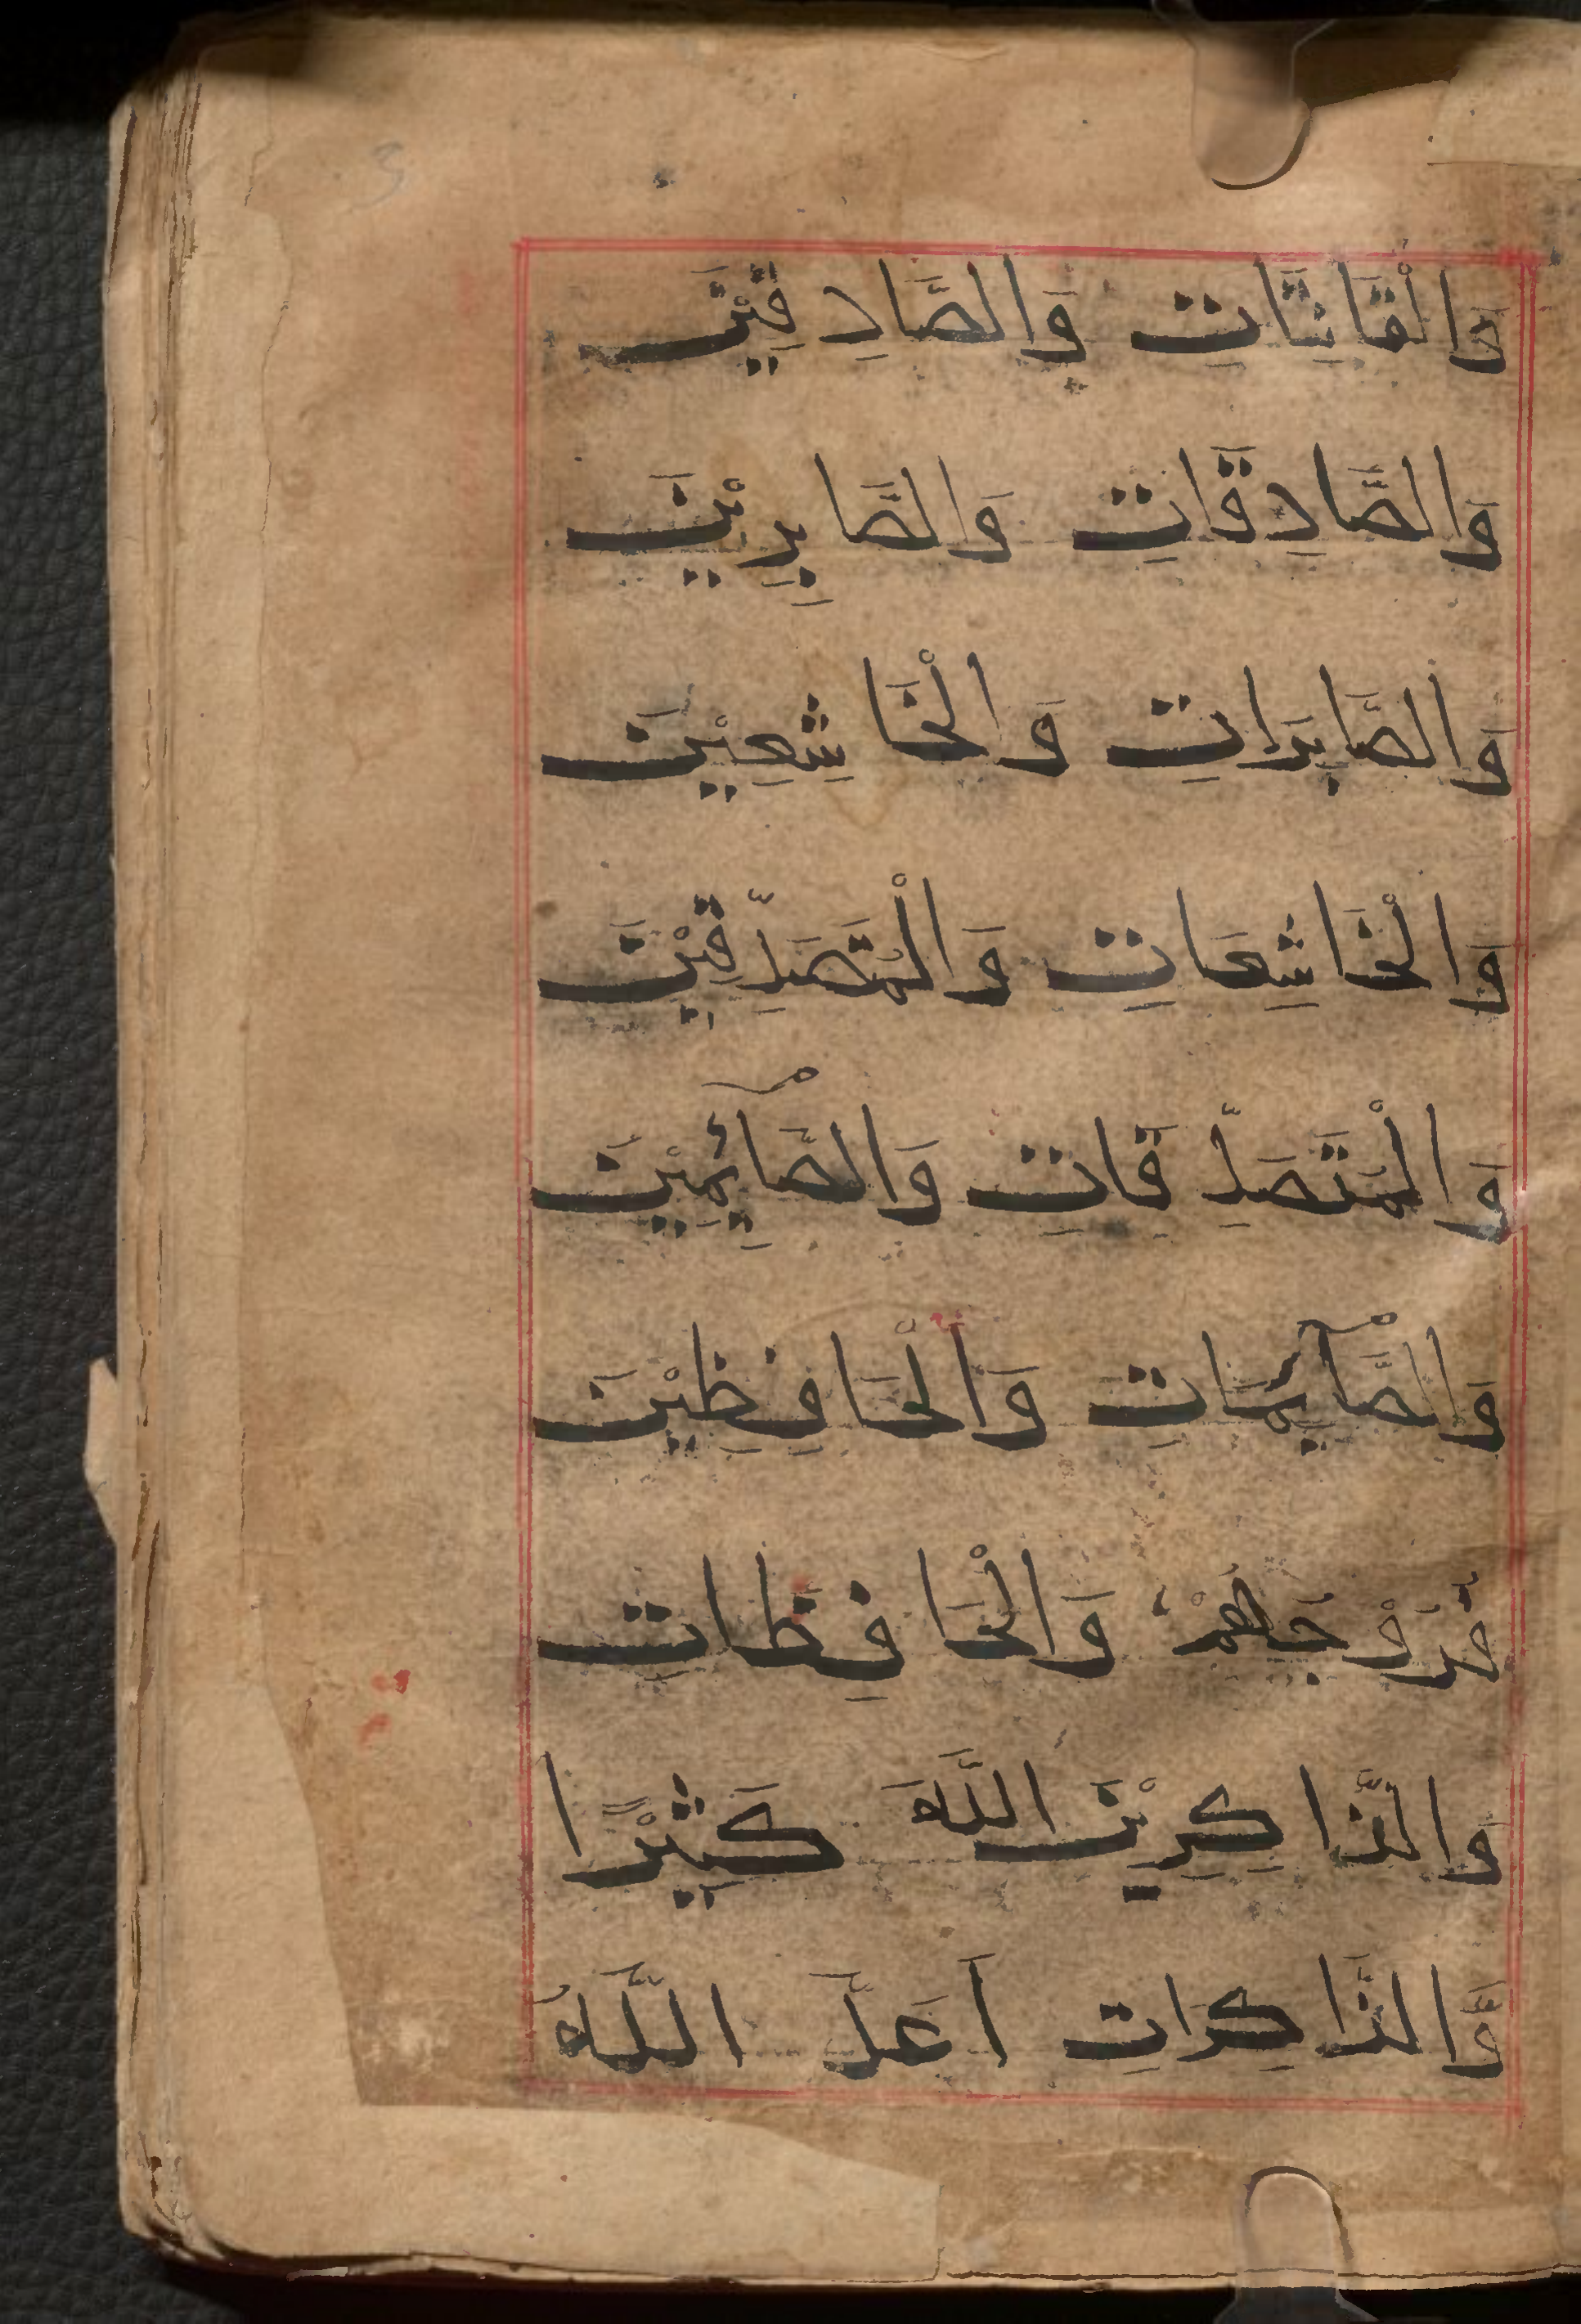 وَالْقَانِتَاتِ وَالصَّادِقِيْنَ
وَالصَّادِقَاتِ وَالصَّابِرِيْنَ
وَالصَّابِرَاتِ وَالْخَاشِعِيْنَ
وَالْخَاشِعَاتِ وَالْمُتَصَدِّقِيْنَ
وَالْمُتَصَدِّقَاتِ وَالصَّآئِمِيْنَ
وَالصَّآئِمَاتِ وَالْحَافِظِيْنَ
فُرُوْجَهُمْ وَالْحَافِظَاتِ
وَالذَّاكِرِيْنَ اللَّهَ كَثِيْرًا
وَّالذَّاكِرَاتِ اَعَدَّ اللَّهُ